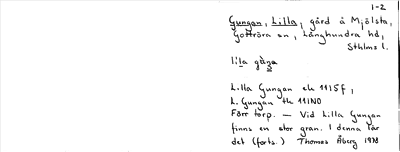 1-2
Gungan, Lilla, gård å Mjölsta,
Gottröra sn, Långhundra hd,
Sthlms l.
lila gàŋa
Lilla Gungan ek 11I5f,
L. Gungan tk 11INO
Förr torp. — Vid Lilla Gungan
finns en stor gran. I denna lär
det (forts.) Thomas Åberg 1978